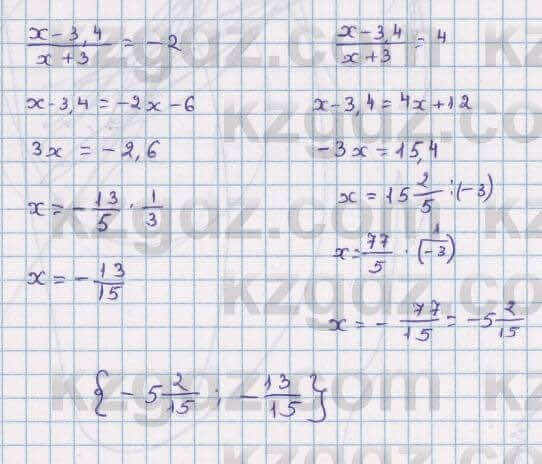 (x-3,4)/(x+3) = -2
x-3,4 = -2x-6
3x = -2,6
x = -13/5 · 1/3
x = -13/15
(x-3,4)/(x+3) = 4
x-3,4 = 4x+12
-3x = 15,4
x = 15 2/5 : (-3)
x = 77/5 · (1/-3)
x = -77/15 = -5 2/15
{-5 2/15 ; -13/15}
kzgdz.com